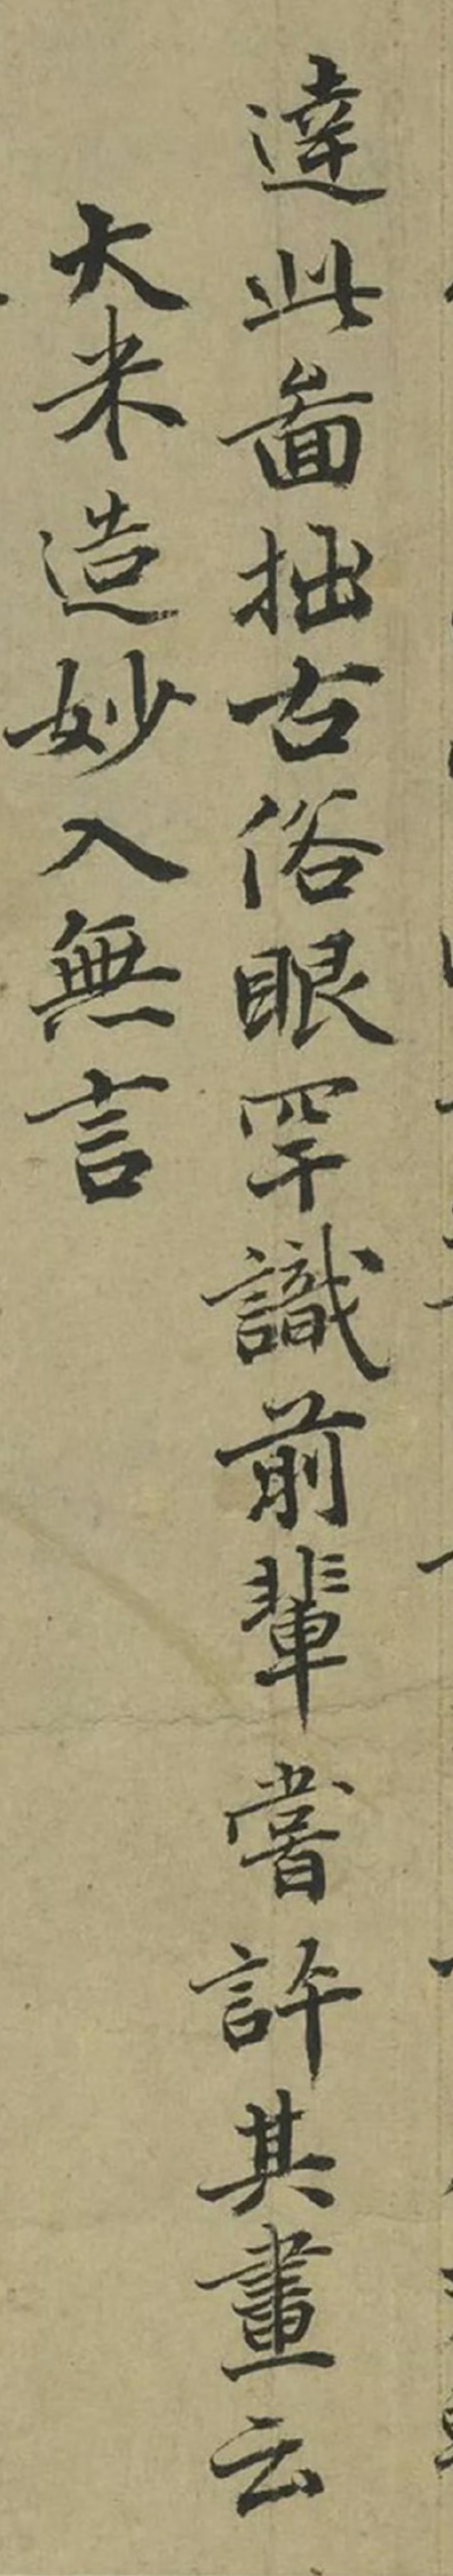 達此啚拙古俗眼罕識前輩嘗許其畫云
大米造妙入無言